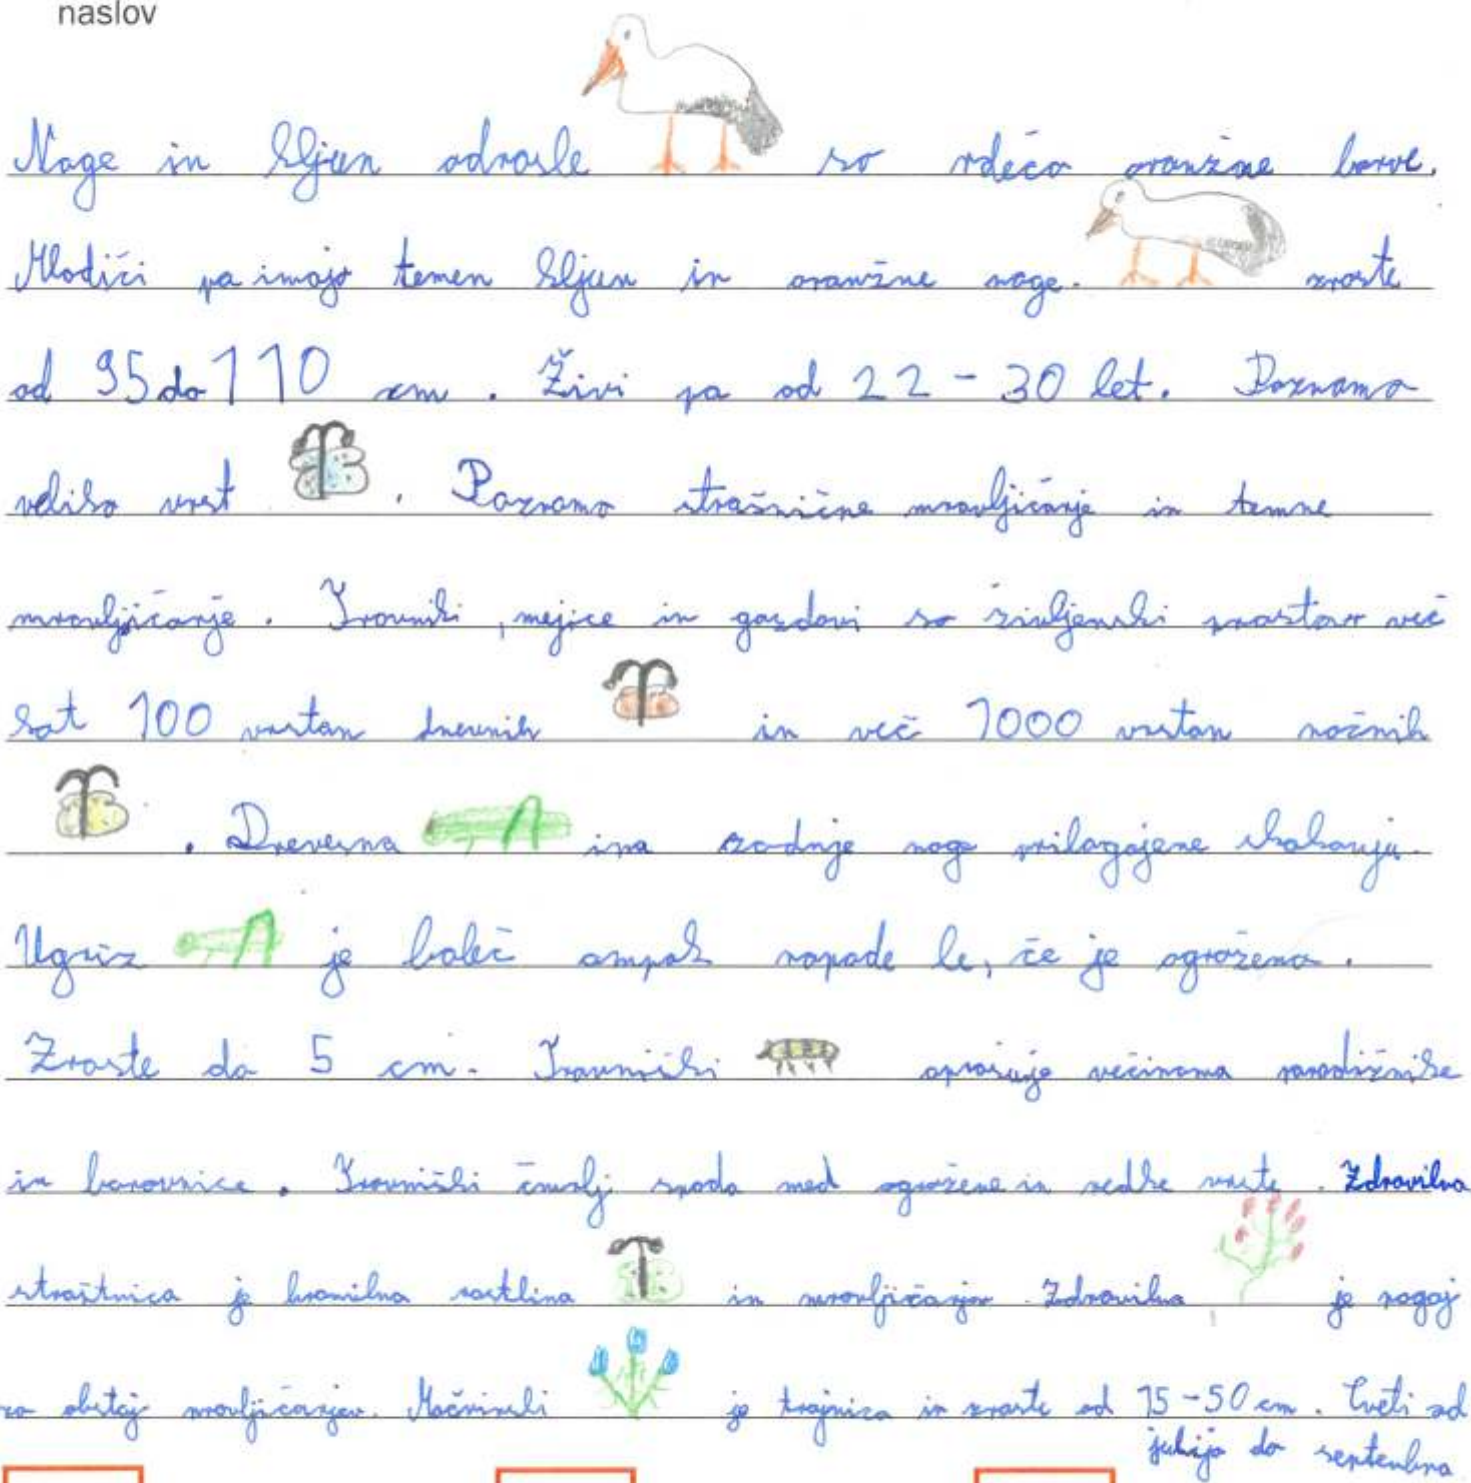 naslov
Noge in kljun odrasle so rdeča oranžne barve.
Mladiči pa imajo temen kljun in oranžne noge. zraste
od 95 do 110 cm. Živi pa od 22-30 let. Poznamo
veliko vrst . Poznamo strašnične mravljičarje in temne
mravljičarje. Travniki, mejice in gozdovi so življenski prostor več
kot 100 vrstam dnevnih in več 1000 vrstam nočnih
. Drevesna ima zadnje noge prilagojene skakanju.
Ugriz je boleč ampak napade le, če je ogrožena.
Zraste do 5 cm. Travniški oprašuje večinoma paradižnike
in borovnice. Travniški čmrlj spada med ogrožene in redke vrste. Zdravilna
strašnica je hranilna rastlina in mravljičarjev. Zdravilna je pogoj
za obstoj mravljičarjev. Močvirski je trajnica in zraste od 15-50 cm. Cveti od
julija do septembra